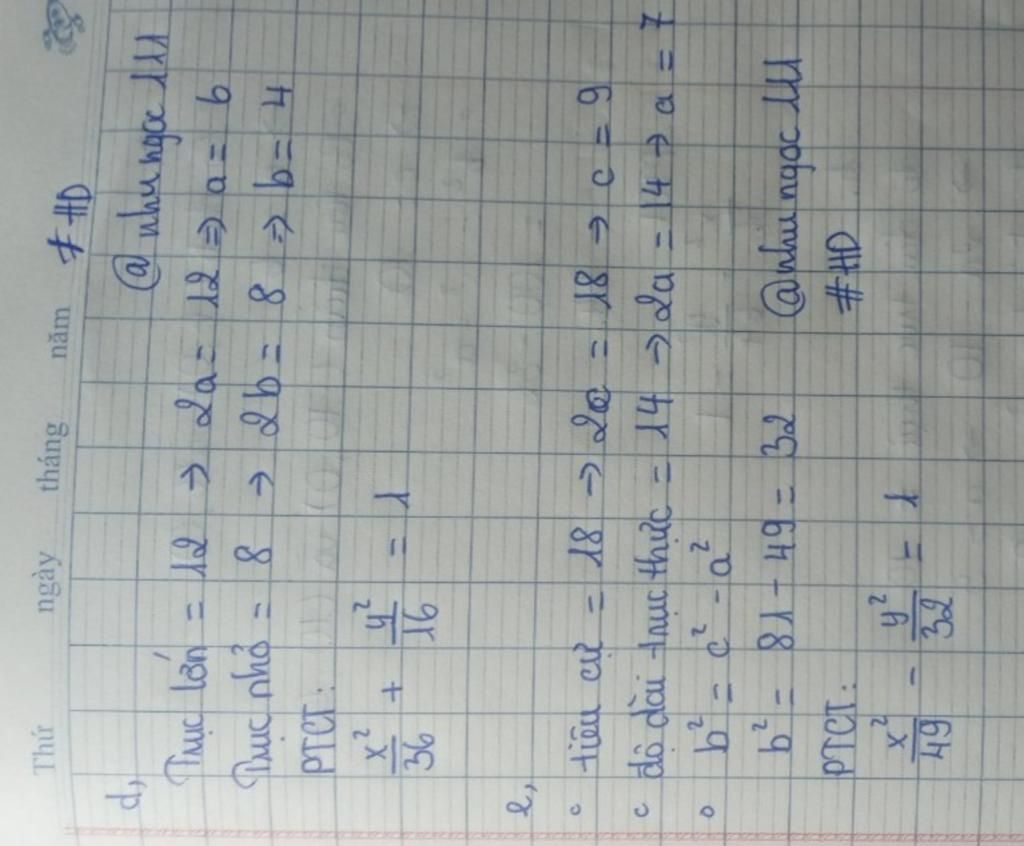 Thứ ngày tháng năm # HD
d, @nhungoc111
Trục lớn = 12 → 2a = 12 => a = 6
Trục nhỏ = 8 → 2b = 8 => b = 4
PTCT:
x²/36 + y²/16 = 1
e,
tiêu cự = 18 → 2c = 18 → c = 9
độ dài trục thực = 14 → 2a = 14 → a = 7
b² = c² - a²
b² = 81 - 49 = 32 @nhungoc111
PTCT: #HD
x²/49 - y²/32 = 1